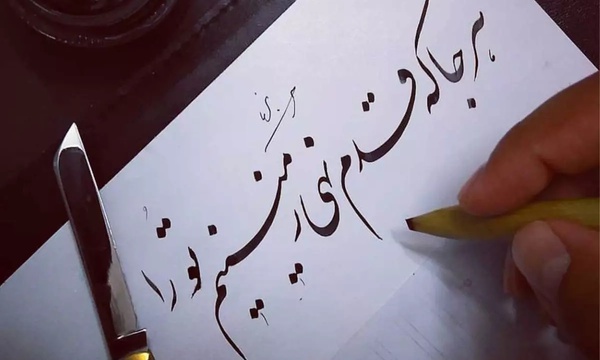 هر جا که قدم نهی زمینیم تو را